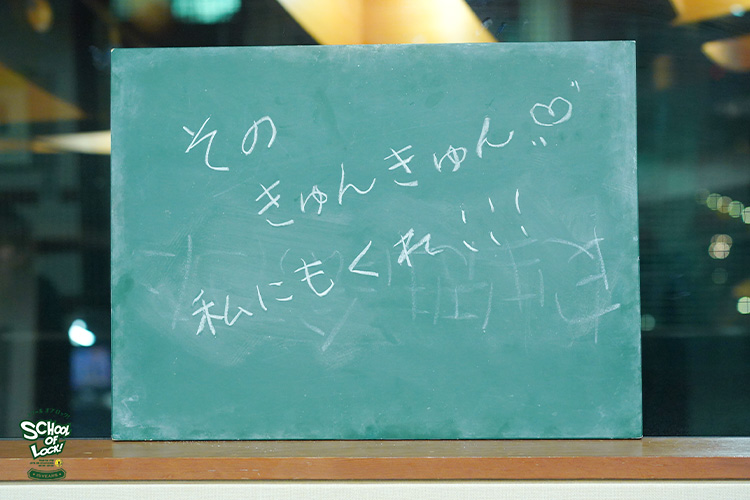 その
きゅんきゅん♡
私にもくれ!!!
SCHOOL
OF
LOCK!